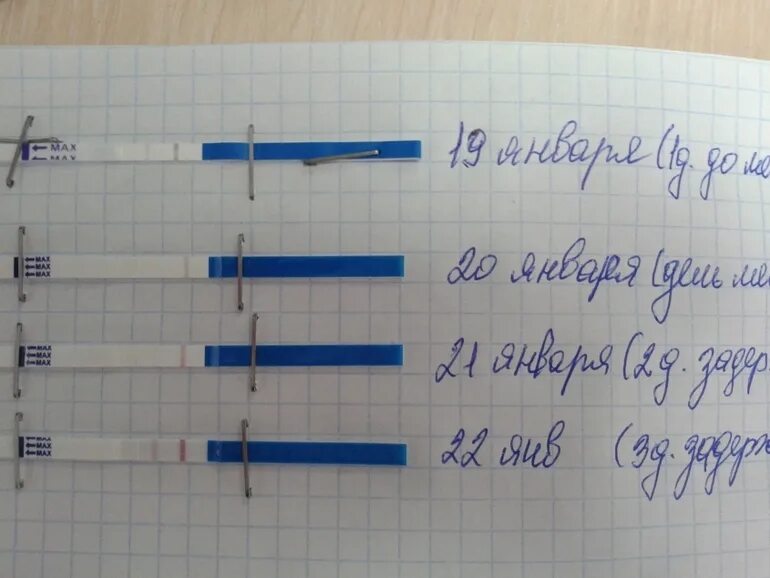 MAX
MAX
19 января (1д. до ме
MAX
MAX
MAX
20 января (день ме
MAX
MAX
MAX
21 января (2д. задер
MAX
MAX
MAX
22 янв (3д. задерж